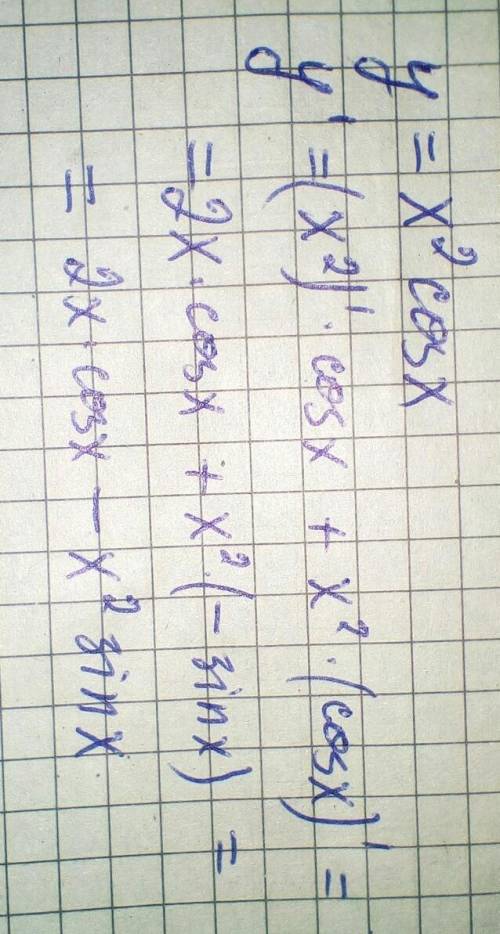 y = x² cosx
y' = (x²)' · cosx + x² · (cosx)' =
= 2x · cosx + x² · (- sinx) =
= 2x · cosx - x² sinx